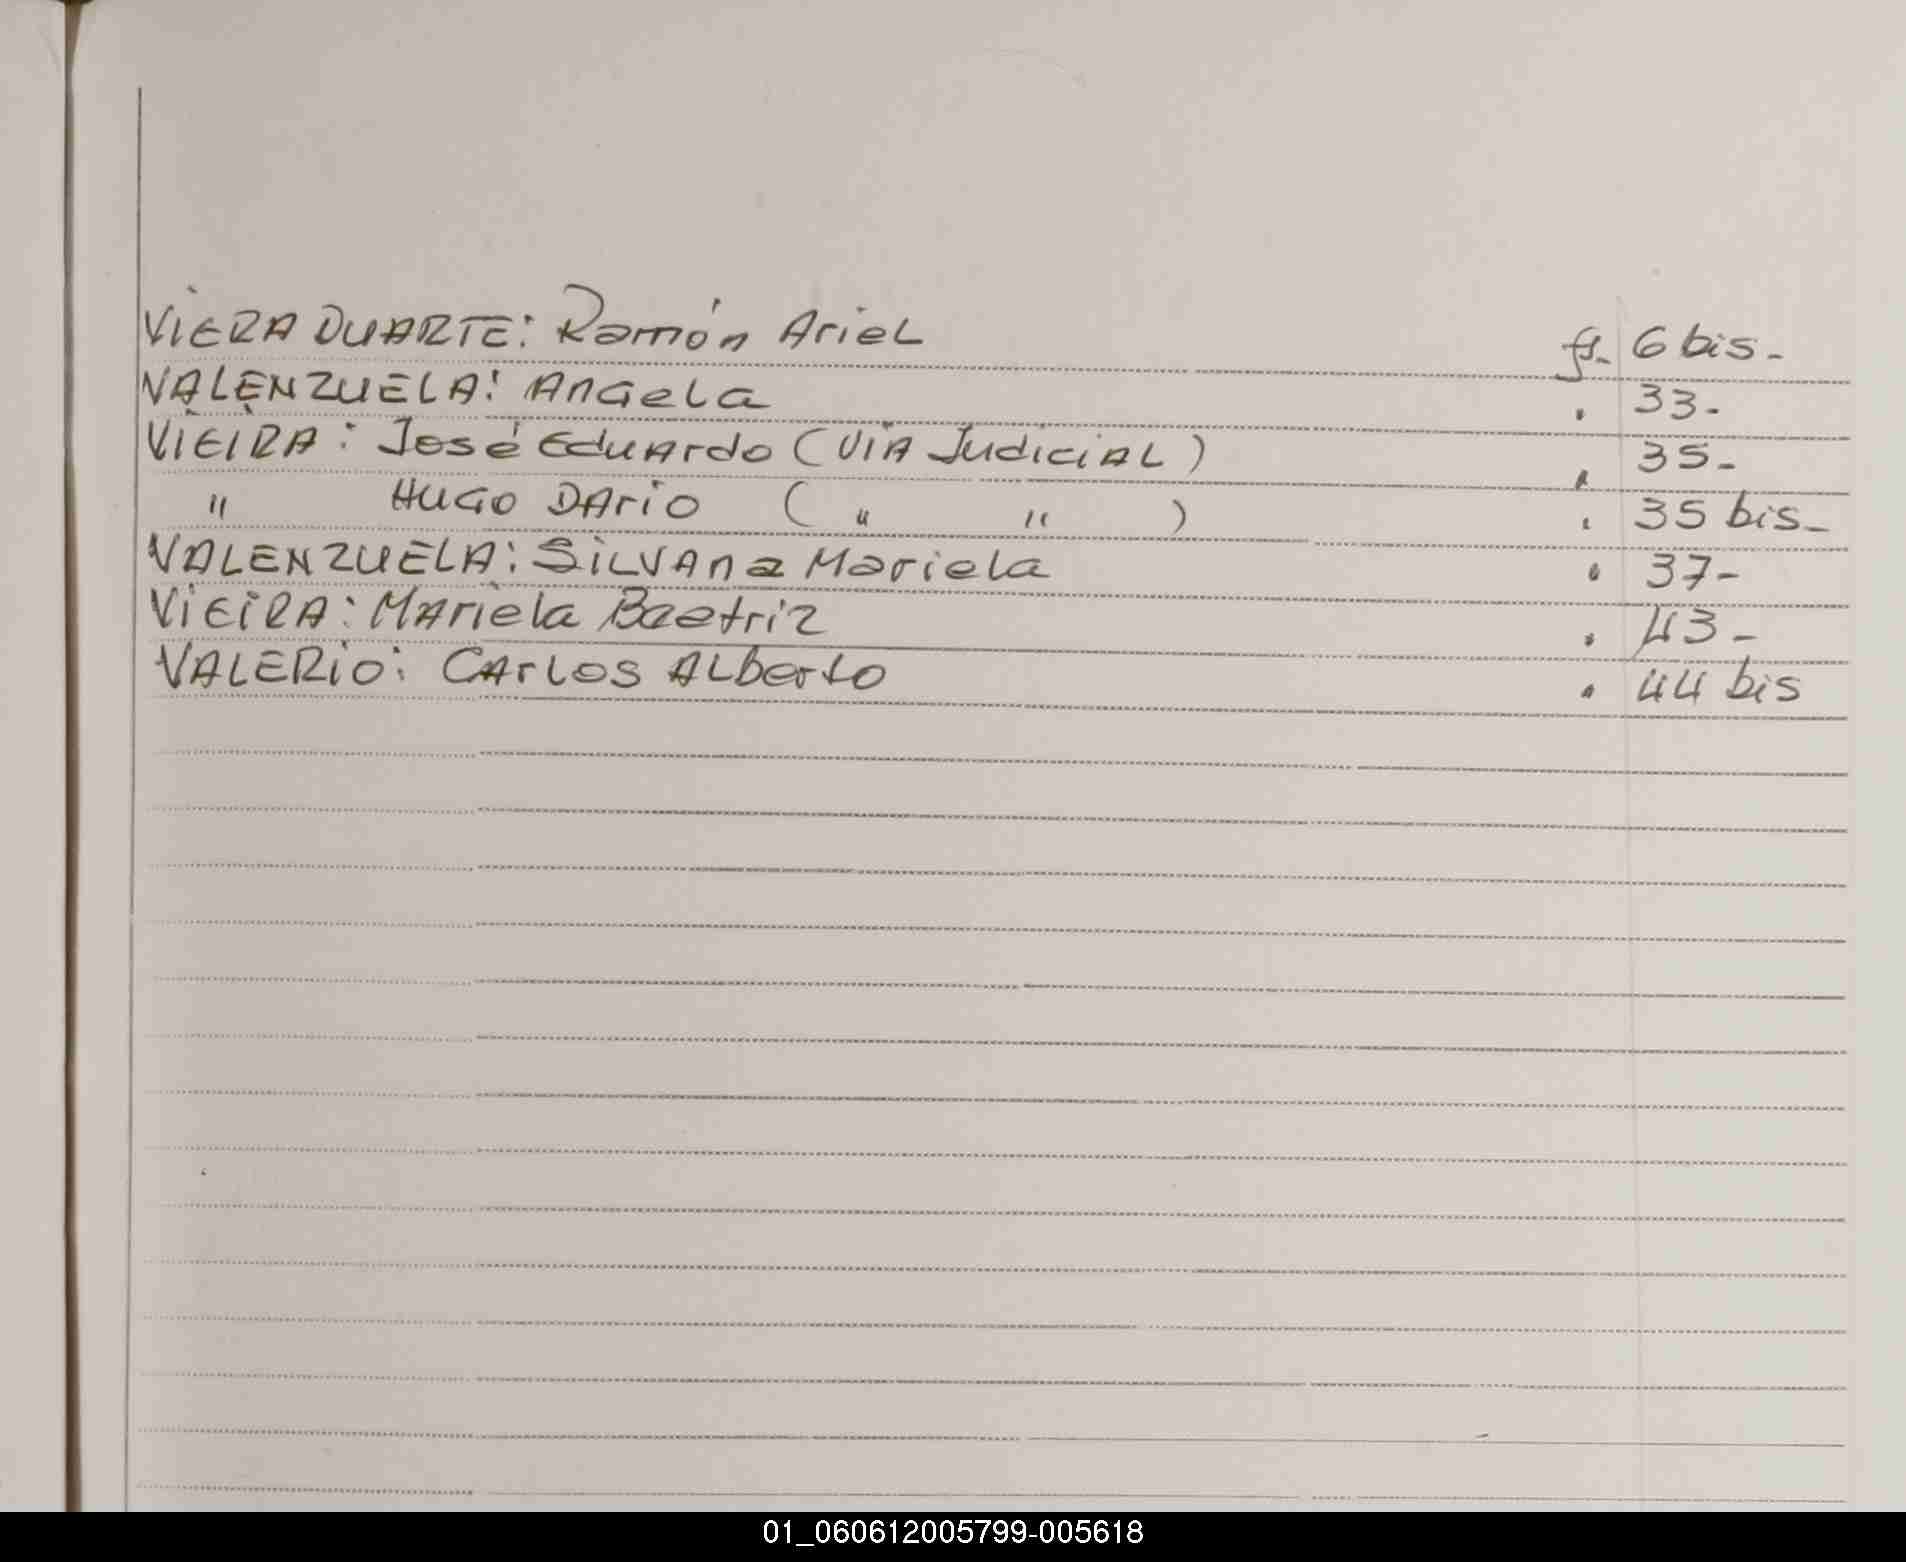 VIERA DUARTE: Ramón Ariel fs. 6 bis-
VALENZUELA: Angela " 33-
VIEIRA: José Eduardo (VIA Judicial) " 35-
" HUGO DArio ( " " ) " 35 bis-
VALENZUELA: SILVAna Mariela " 37-
VIEIRA: Mariela Baetriz " 43-
VALERIO: CArlos ALberto " 44 bis
01_060612005799-005618